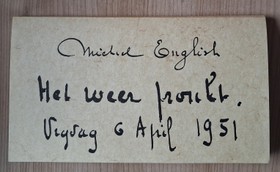 Michel English
Het weer pronkt.
Vrydag 6 April 1951